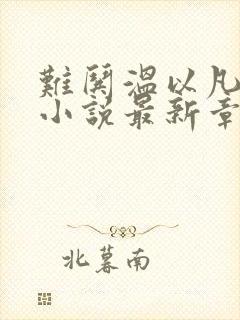 難鬨溫以凡
小説最新章
北暮南